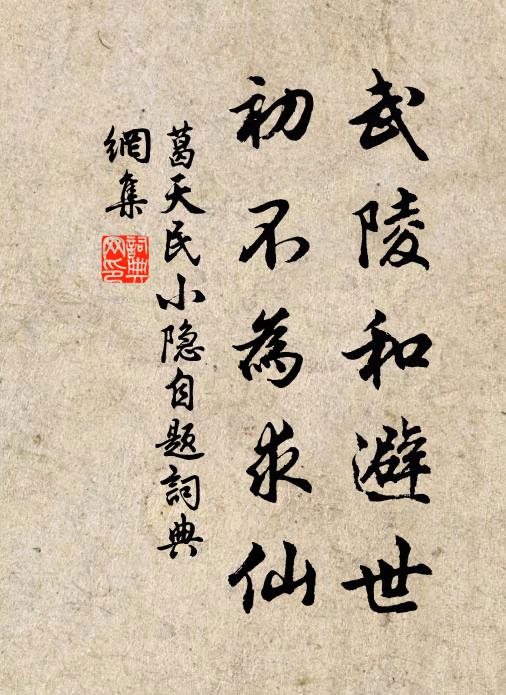 武陵和避世
初不為求仙
葛天民小隐自题詞典
網集
詞典
网印